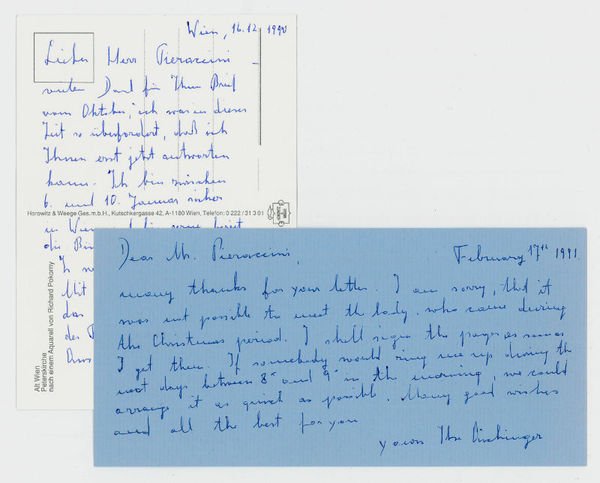 Wien, 16.12.1990
Lieber Herr Pieraccini -
vielen Dank für Ihren Brief
vom Oktober, ich war in dieser
Zeit so überfordert, daß ich
Ihnen erst jetzt antworten
kann. Ich bin zwischen
6. und 10. Januar sicher
Horowitz & Weege Ges.m.b.H., Kutschkergasse 42, A-1180 Wien, Telefon: 0 222 / 31 3 01
in Wien
die
Mit
das
des
Alt Wien
Peterskirche
nach einem Aquarell von Richard Pokorny
Dear Mr. Pieraccini, February 17th 1991
many thanks for your letter. I am sorry, that it
was not possible to meet the lady, who came during
the Christmas period. I shall sign the pages as soon as
I get them. If somebody would ring me up during the
next days between 8 and 9 in the morning, we could
arrange it as quick as possible. Many good wishes
and all the best for you
yours Ilse Aichinger